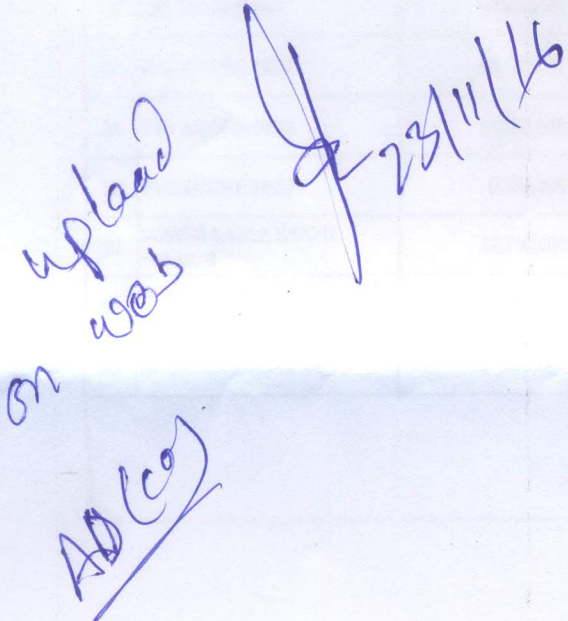 upload
on web
23/11/16
AD (CO)